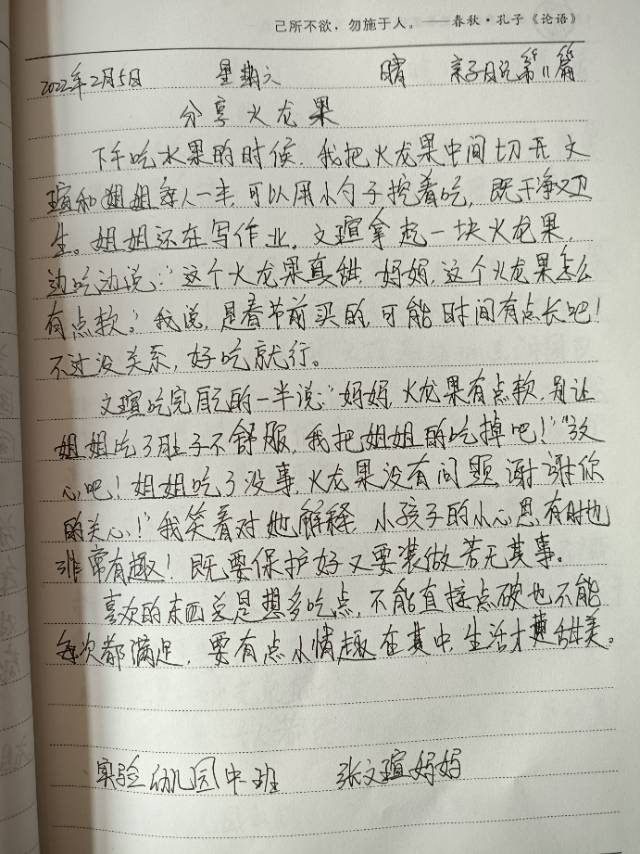 己所不欲，勿施于人。——春秋·孔子《论语》
2022年2月5日 星期六 晴 亲子日记第11篇
分享火龙果
下午吃水果的时候，我把火龙果中间切开，文
瑄和姐姐每人一半，可以用小勺子挖着吃，既干净又卫
生。姐姐还在写作业，文瑄拿起一块火龙果，
边吃边说：“这个火龙果真甜，妈妈，这个火龙果怎么
有点软。”我说，是春节前买的，可能时间有点长吧！
不过没关系，好吃就行。
文瑄吃完自己的一半说：“妈妈，火龙果有点软，别让
姐姐吃了肚子不舒服，我把姐姐的吃掉吧！”“放
心吧！姐姐吃了没事，火龙果没有问题，谢谢你
的关心！”我笑着对她解释，小孩子的小心思有时也
非常有趣！既要保护好又要装做若无其事。
喜欢的东西总是想多吃点，不能直接点破也不能
每次都满足，要有点小情趣在其中，生活才更甜美。
实验幼儿园中一班 张文瑄妈妈